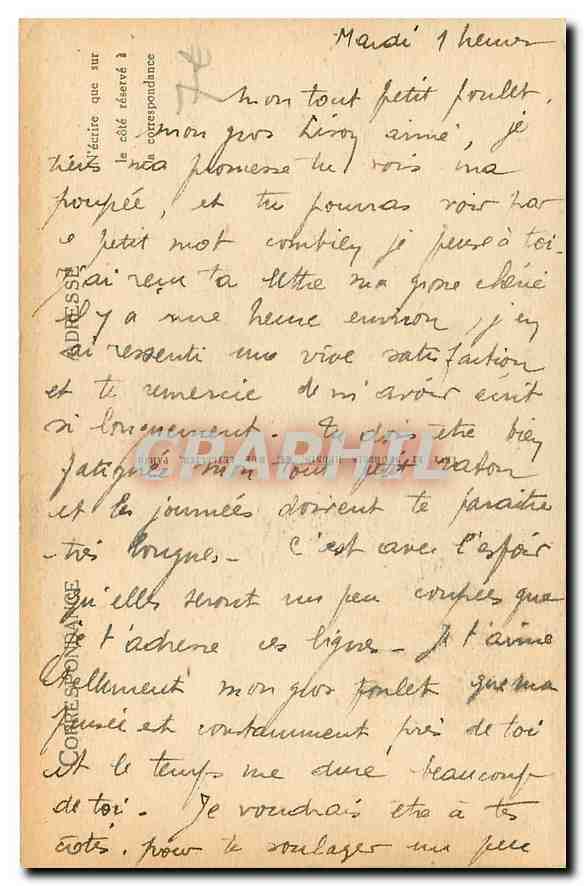 Mardi 1 heure
mon tout petit poulet.
mon gros Lisou aimé, je
tiens ma promesse tu vois ma
poupée, et tu pourras voir par
ce petit mot combien je pense à toi.
J'ai reçu ta lettre ma grosse chérie
il y a une heure environ, j'en
ai ressenti une vive satisfaction
et te remercie de m'avoir écrit
si longuement. Tu dois etre bien
fatiguée mon tout petit raton
et les journées doivent te paraitre
très longues - C'est avec l'espoir
qu'elles seront un peu coupées que
je t'adresse ces lignes - Je t'aime
tellement mon gros poulet que ma
pensée est constamment près de toi
et le temps me dure beaucoup
de toi. Je voudrais etre à tes
cotés, pour te soulager un peu
N'écrire que sur
le côté réservé à
la correspondance
7€
ADRESSE
CORRESPONDANCE
CPAPHIL